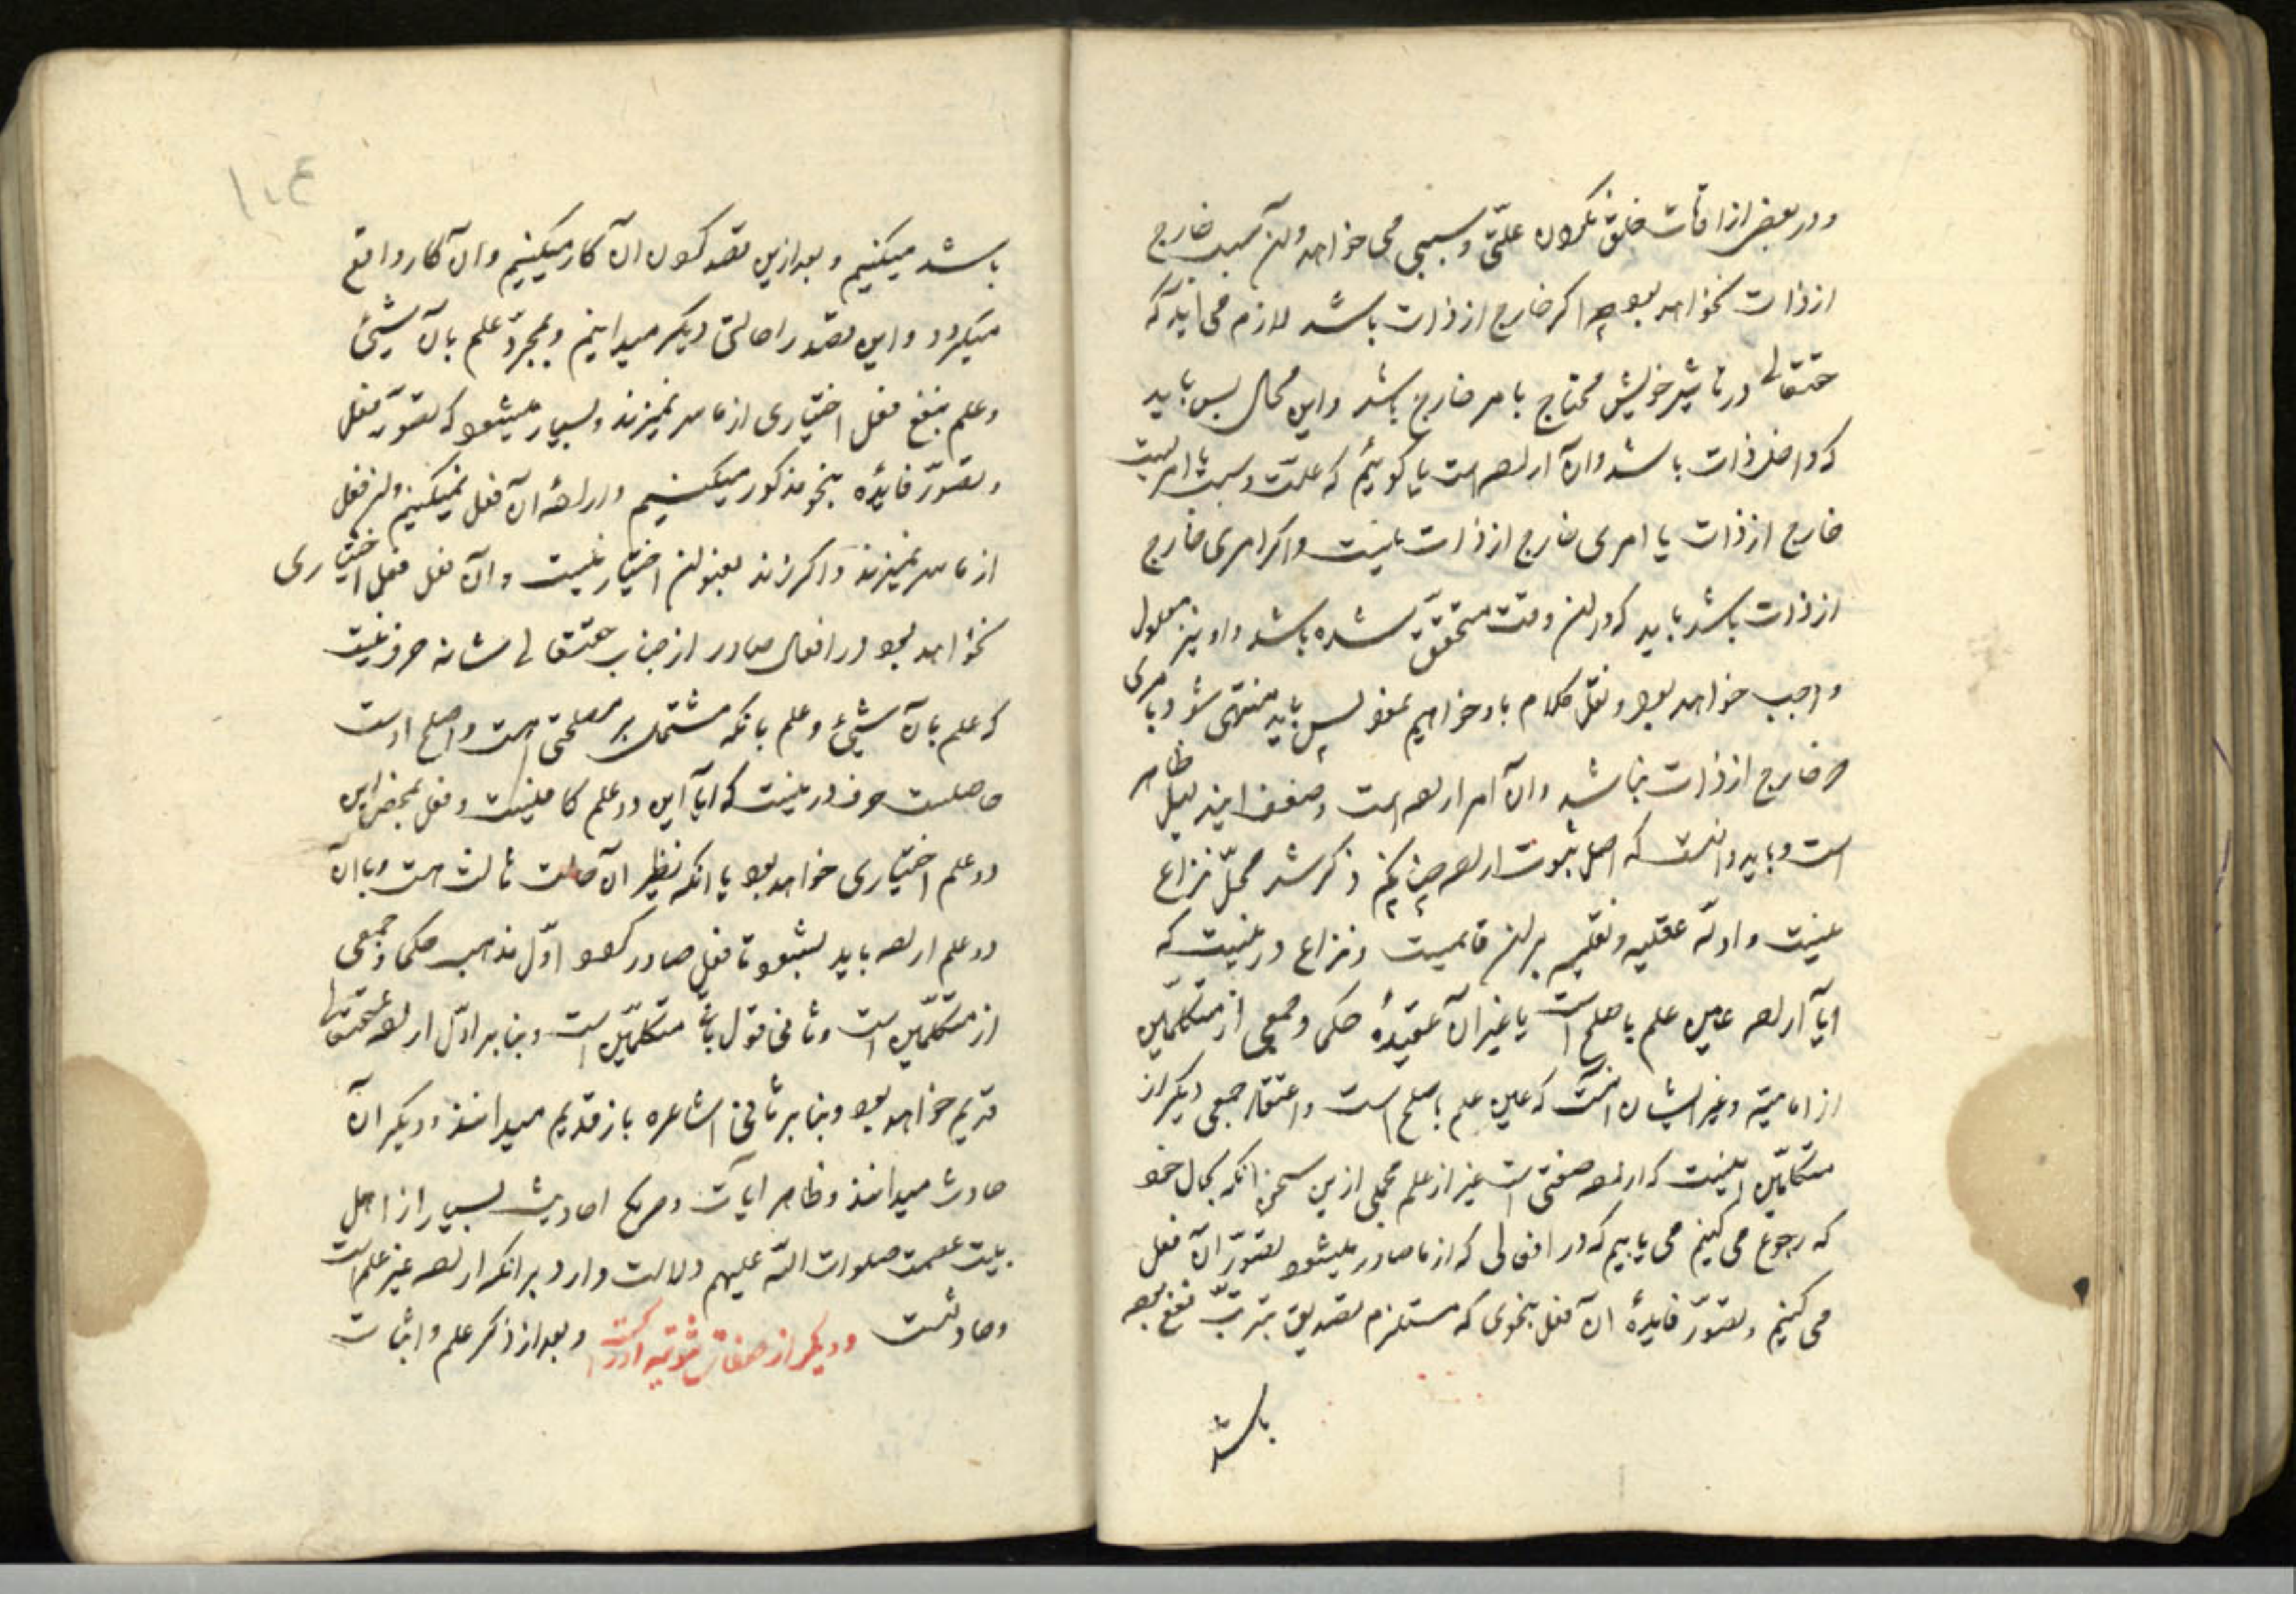 و در بعضی از اوقات خلق نکردن علّتی و سببی می خواهد و آن سبب خارج
از ذات نخواهد بود چه اگر خارج از ذات باشد لازم می آید که
حقتعالی در تاثیر خویش محتاج بامر خارج باشد و این محال پس باید
که داخل ذات باشد و آن اراده است یا گوئیم که علت و سبب یا امریست
خارج از ذات یا امری خارج از ذات نیست و اگر امری خارج
از ذات باشد باید که در آن وقت متحقق شده باشد و او نیز معلول
واجب خواهد بود و نقل کلام باو خواهیم نمود پس باید منتهی شود بامری
که خارج از ذات نباشد و آن امر اراده است و ضعف این دلیل ظاهر
است و باید دانست که اصل ثبوت اراده چنانکه ذکر شد محلّ نزاع
نیست و ادلّه عقلیه و نقلیه بر آن قایمست و نزاع در اینست که
آیا اراده عین علم باصلح است یا غیر آن عقیدهٔ حکما و جمعی از متکلّمین
از امامیّه و غیر ایشان آنست که عین علم باصلح است و اعتقاد جمعی دیگر از
متکلّمین اینست که اراده صفتی است غیر از علم مجملی ازین سخن آنکه بحال خود
که رجوع می کنیم می یابیم که در افعالی که از ما صادر میشود تصوّر آن فعل
می کنیم و تصوّر فایدهٔ آن فعل بنحوی که مستلزم تصدیق بترتّب نفع بوده
باشد
باشد میکنیم و بعد ازین قصد کردن آن کار میکنیم و آن کار واقع
میگردد و این قصد را حالتی دیگر میدانیم و بمجرّد علم بآن شیئ
و علم بنفع فعل اختیاری از ما سر نمیزند و بسیار میشود که تصوّر فعل
و تصوّر فایده بنحو مذکور میکنیم و ارادهٔ آن فعل نمیکنیم و آن فعل
از ما سر نمیزند و اگر زند بعنوان اختیار نیست و آن فعل فعل اختیاری
نخواهد بود در افعال صادر از جناب حقتعالی شانه حرف نیست
که علم بآن شیئ و علم بآنکه مشتمل بر مصلحتی است و اصلح است
حاصلست حرف در اینست که آیا این دو علم کافیست و فعل بمحض این
دو علم اختیاری خواهد بود یا آنکه نظیر آن حالت ثالث هست و با آن
دو علم اراده باید بشود تا فعل صادر گردد اوّل مذهب حکما و جمعی
از متکلّمین است و ثانی قول باقی متکلّمین است و بنا بر اوّل اراده حقتعالی
قدیم خواهد بود و بنا بر ثانی اشاعره باز قدیم میدانند و دیگران
حادث میدانند و ظاهر آیات و صریح احادیث بسیار از اهل
بیت عصمت صلوات اللّه علیهم دلالت دارد بر آنکه اراده غیر علم است
و حادثست و دیگر از صفات ثبوتیه ادراکست و بعد از ذکر علم و اثبات